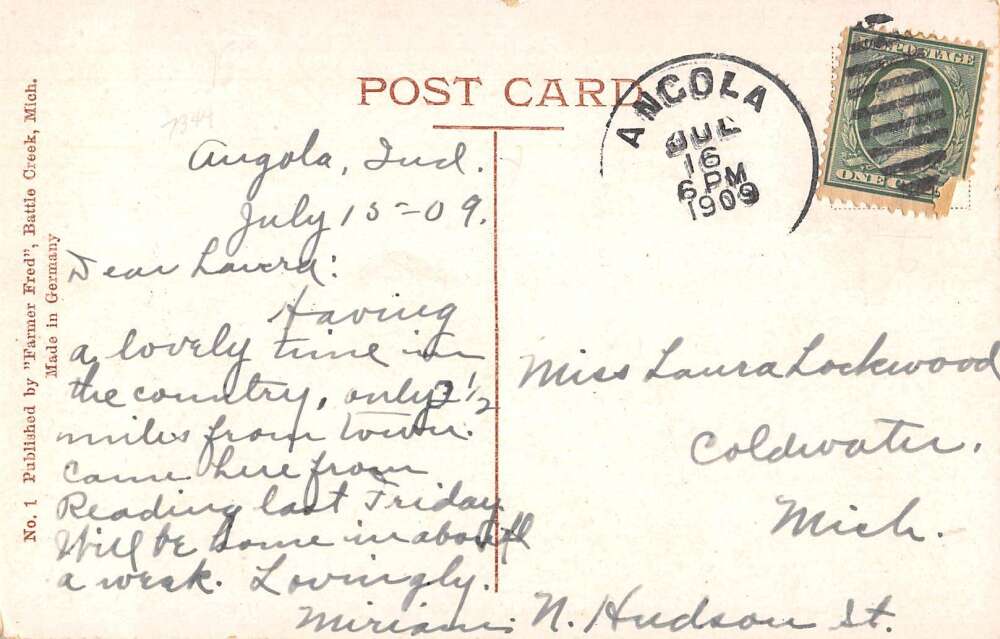 No. 1 Published by "Farmer Fred", Battle Creek, Mich.
Made in Germany
POST CARD
ANGOLA
JUL
16
6 PM
1909
U.S. POSTAGE
ONE
7344
Angola, Ind.
July 15-09.
Dear Laura:
Having
a lovely time in
the country, only 3 1/2
miles from town.
Came here from
Reading last Friday
Will be home in about
a week. Lovingly.
Miriam.
Miss Laura Lockwood
Coldwater,
Mich.
N. Hudson St.